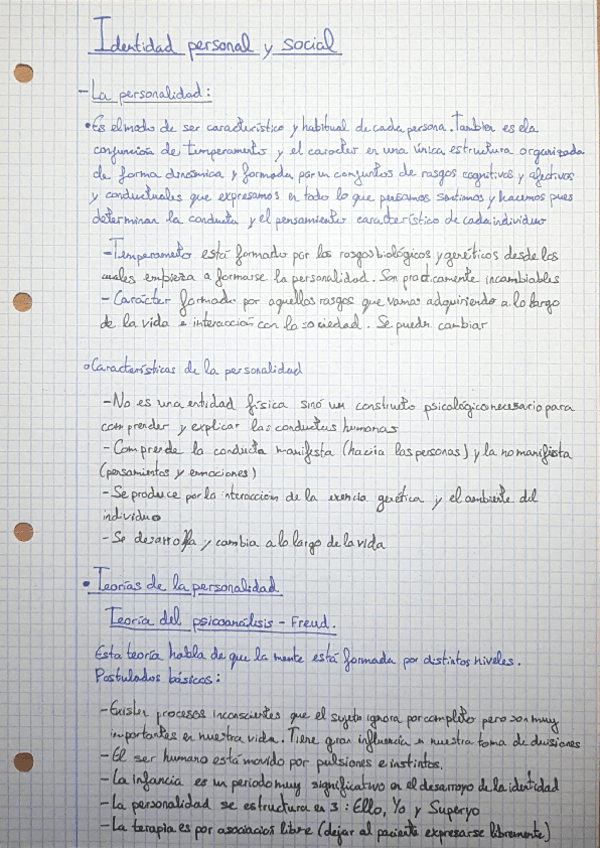 Identidad personal y social
- La personalidad:
• Es el modo de ser característico y habitual de cada persona. Tambien es la
conjunción de temperamento y el caracter en una única estructura organizada
de forma dinámica y formada por un conjunto de rasgos cognitivos y afectivos
y conductuales que expresamos en todo lo que pensamos sentimos y hacemos pues
determinan la conducta y el pensamiento característico de cada individuo
- Temperamento está formado por los rasgos biológicos y genéticos desde los
cuales empieza a formarse la personalidad. Son practicamente incambiables
- Carácter formado por aquellos rasgos que vamos adquiriendo a lo largo
de la vida e interacción con la sociedad. Se pueden cambiar
o Características de la personalidad
- No es una entidad física sinó un constructo psicológico necesario para
comprender y explicar las conductas humanas
- Comprende la conducta manifiesta (hacia las personas) y la no manifiesta
(pensamientos y emociones)
- Se produce por la interacción de la genética y el ambiente del
individuo
- Se desarrolla y cambia a lo largo de la vida
• Teorías de la personalidad
Teoría del psicoanálisis - Freud.
Esta teoría habla de que la mente está formada por distintos niveles.
Postulados básicos:
- Existen procesos inconscientes que el sujeto ignora por completo pero son muy
importantes en nuestra vida. Tiene gran influencia en nuestra toma de decisiones
- El ser humano está movido por pulsiones e instintos.
- La infancia es un periodo muy significativo en el desarroyo de la identidad
- La personalidad se estructura en 3: Ello, Yo y Superyo
- La terapia es por asociacios libre (dejar al paciente expresarse libremente)